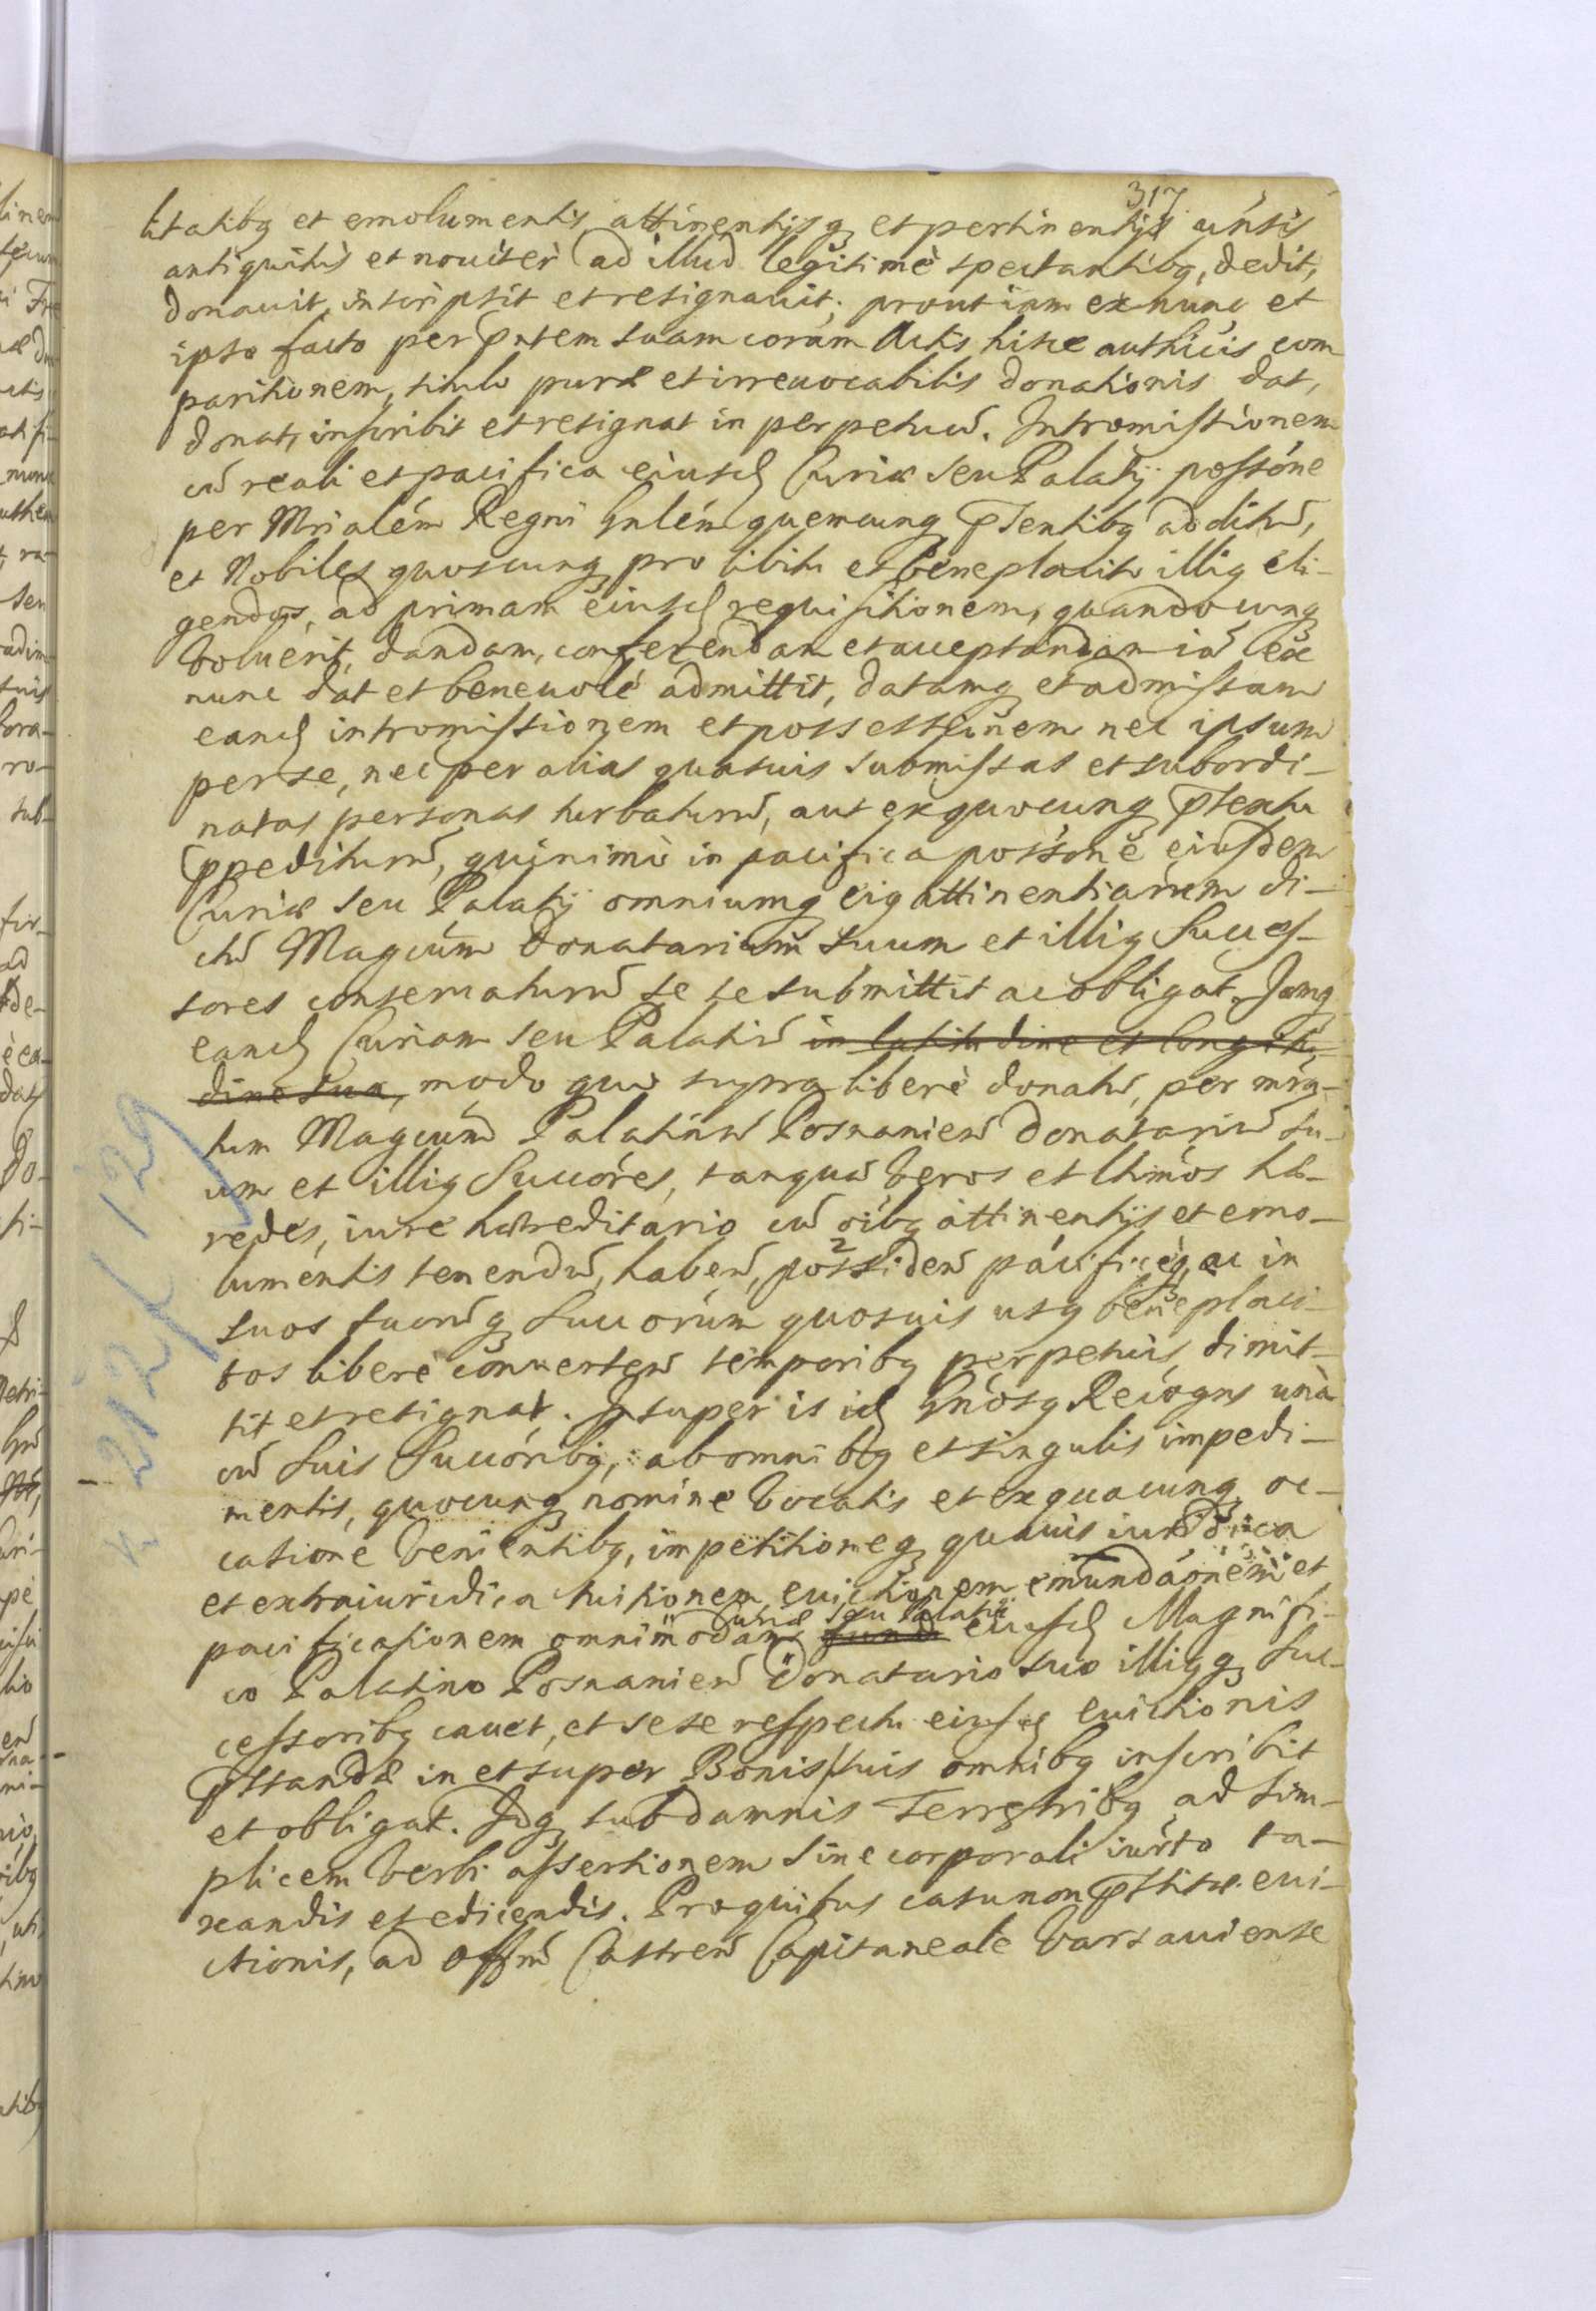 317
litatibq et emolumentis, attinentijsq et pertinentijs uńsis
antiquitùs et nouiter ad illud legitimè spectantibq, dedit,
donauit, inscripsit et resignauit, prout iam ex nunc et
ipso facto per pntem suam coram Actis hisce authicis com
paritionem, titulo puræ et irreuocabilis donationis dat,
donat, inscribit et resignat in perpetuũ. Intromissionem
cũ reali et pacifica eiusd Curiæ seu Palatij possóne
per Mrialém Regni Gnlém quemcunq pñentibq additũ,
et Nobiles quoscunq pro libitu et beneplacito illiq eli-
gendos, ad primam eiusd requisitionem, quandocunq
voluerit, dandam, conferendam et acceptandam iã ex
nunc dat et beneuolè admittit, datamq et admissam
eand intromissionem et possessionem nec ipsum
per se, nec per alias quasuis submissas et subordi-
natas personas turbaturũ, aut ex quocunq ptextu
ppediturũ, quinimò in pacifica possóne eiusdem
Curiæ seu Palatij omniumq eiq attinentiarum di-
ctũ Magcum Donatarium suum et illiq Succes-
sores conseruaturũ se se submittit ac obligat. Jamq
eand Curiam seu Palatiũ in latitudine et longitu-
dine sua, modo quo supra liberè donatũ, per mŕa-
tum Magcum Palatinũ Posnanień Donatariũ su-
um et illiq Succóres, tanquã veros et lthmós hæ-
redes, iure hæreditario cũ oibq attinentijs et emo-
lumentis tenendũ, habeń, possideń pacificèq, ac in
suos suorũq Succorum quosuis usq beneplaci-
tos liberè conuerteń temporibq perpetuis, dimit-
tit et resignat. Insuper is id Gnósq Recogns unà
cũ suis Succóribq, ab omnibq et singulis impedi-
mentis, quocunq nomine vocatis et ex quacunq oc-
casione venientibq, impetitioneq quauis iuridica
et extraiuridica tuitionem, euictionem emundaónem et
pacificationem omnimodam fundi Curiæ seu Palatii eiusd Magnifi-
co Palatino Posnanień Donatario suo illiqq suc-
cessoribq cauet, et sese respectu eiusd euictionis
pstandæ in et super Bonis suis omnibq inscribit
et obligat. Idq sub damnis Terrestribq ad sim-
plicem verbi assertionem sine corporali iuŕto ta-
xandis et edicendis. Pro quibus casu non pstitæ eui-
ctionis, ad Offm̃ Castreń Capitaneale Varsauiense
212/129